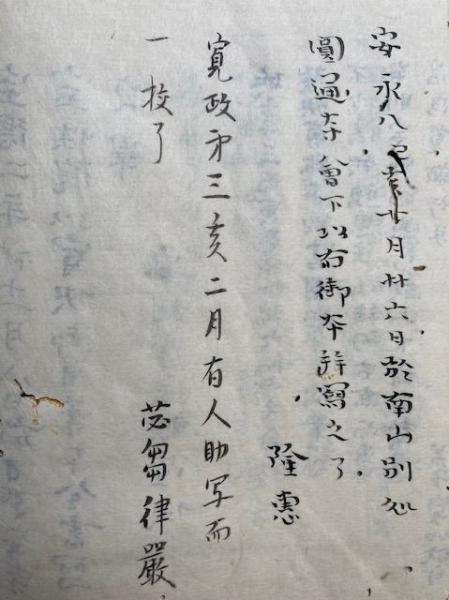 安永八己亥月廿六日於南山別処
圓通寺會下以右御本拜寫之了
隆惠
寛政第三亥二月有人助写而
一校了
苾蒭律嚴